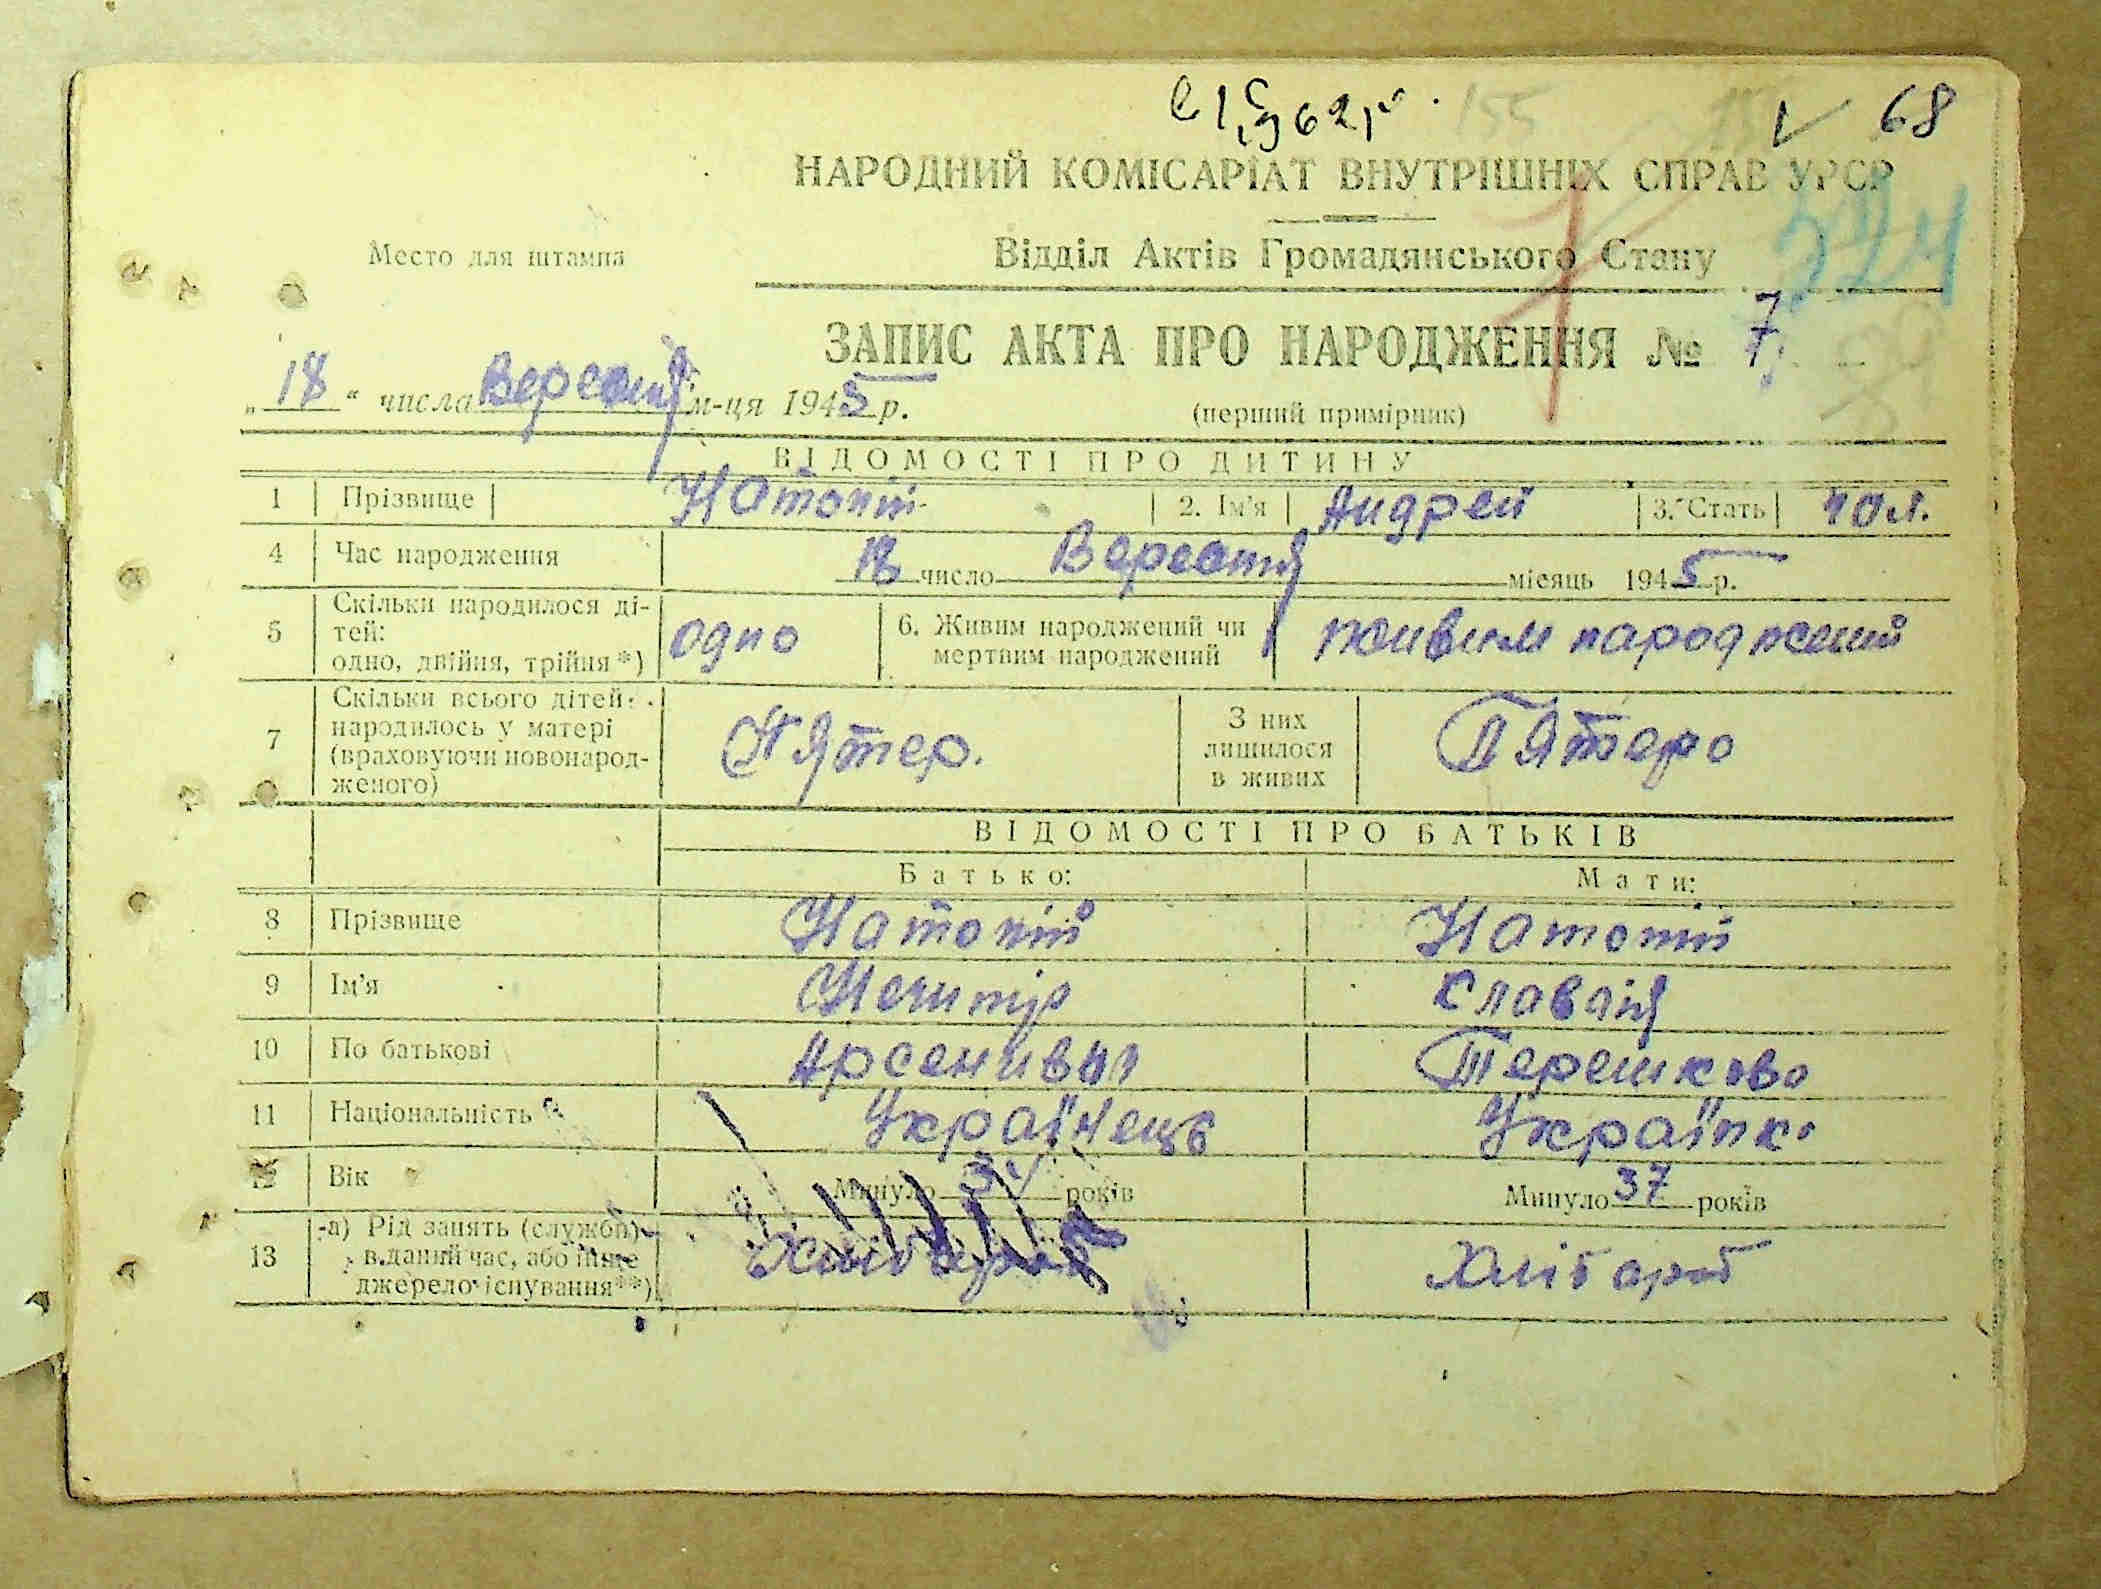 68
НАРОДНИЙ КОМІСАРІАТ ВНУТРІШНІХ СПРАВ УРСР
Место для штампа
Відділ Актів Громадянського Стану
324
ЗАПИС АКТА ПРО НАРОДЖЕННЯ № 7
„18“ числа Вересня м-ця 1945 р.
(перший примірник)
ВІДОМОСТІ ПРО ДИТИНУ
1 Прізвище Натопій 2. Ім'я Андрей 3. Стать чол.
4 Час народження 18 число Вересня місяць 1945 р.
5 Скільки народилося ді-
тей:
одно, двійня, трійня*) одно 6. Живим народжений чи
мертвим народжений живим народжений
7 Скільки всього дітей
народилось у матері
(враховуючи новонарод-
женого) Пятер. З них
лишилося
в живих Пятеро
ВІДОМОСТІ ПРО БАТЬКІВ
Батько: Мати:
8 Прізвище Натопій Натопій
9 Ім'я Нечипір
10 По батькові Терешково
11 Національність Українець Українка
12 Вік Минуло років Минуло 37 років
13 а) Рід занять (служби)
в даний час, або інше
джерело існування**) Хлібороб Хлібороб